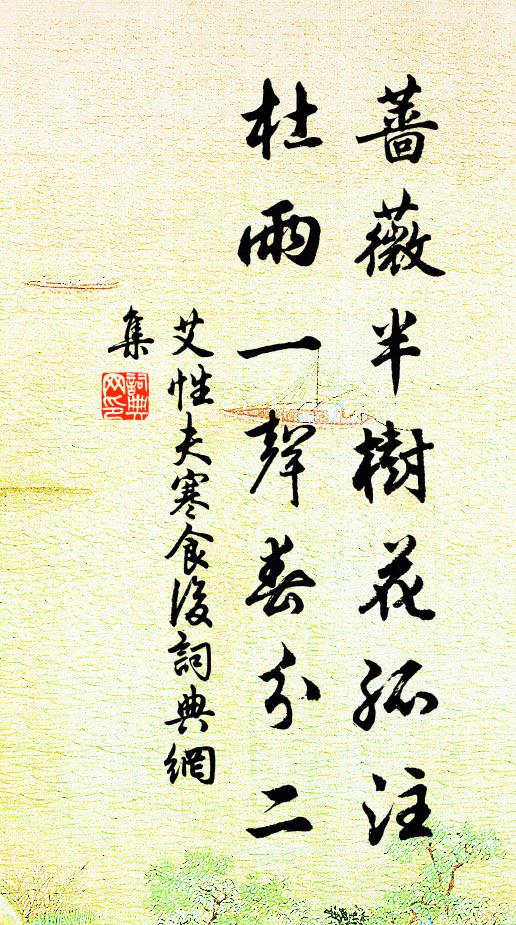 蔷薇半樹花孤注
杜雨一聲春分二
艾性夫寒食後詞典網
集
詞典
网印